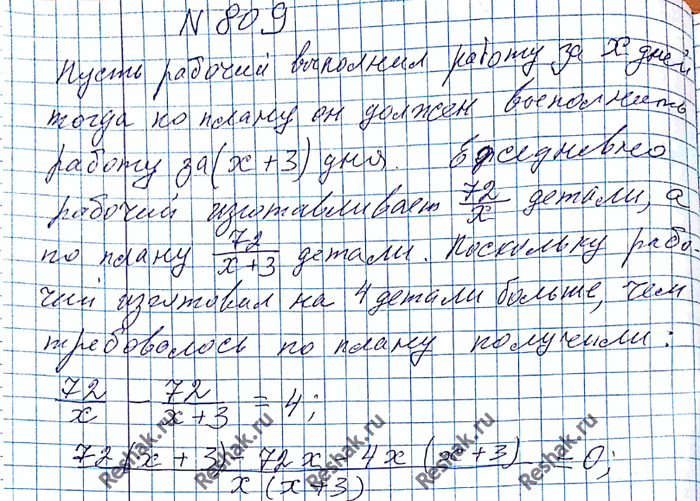 N 809
Пусть рабочий выполнил работу за x дней
тогда по плану он должен выполнить
работу за (x + 3) дня. Ежедневно
рабочий изготавливает 72/x детали, а
по плану 72/(x+3) детали. Поскольку рабо-
чий изготовил на 4 детали больше, чем
требовалось по плану получили:
72/x − 72/(x+3) = 4;
(72(x + 3) − 72x − 4x (x+3))/(x (x+3)) = 0;
Reshak.ru Reshak.ru Reshak.ru Reshak.ru Reshak.ru